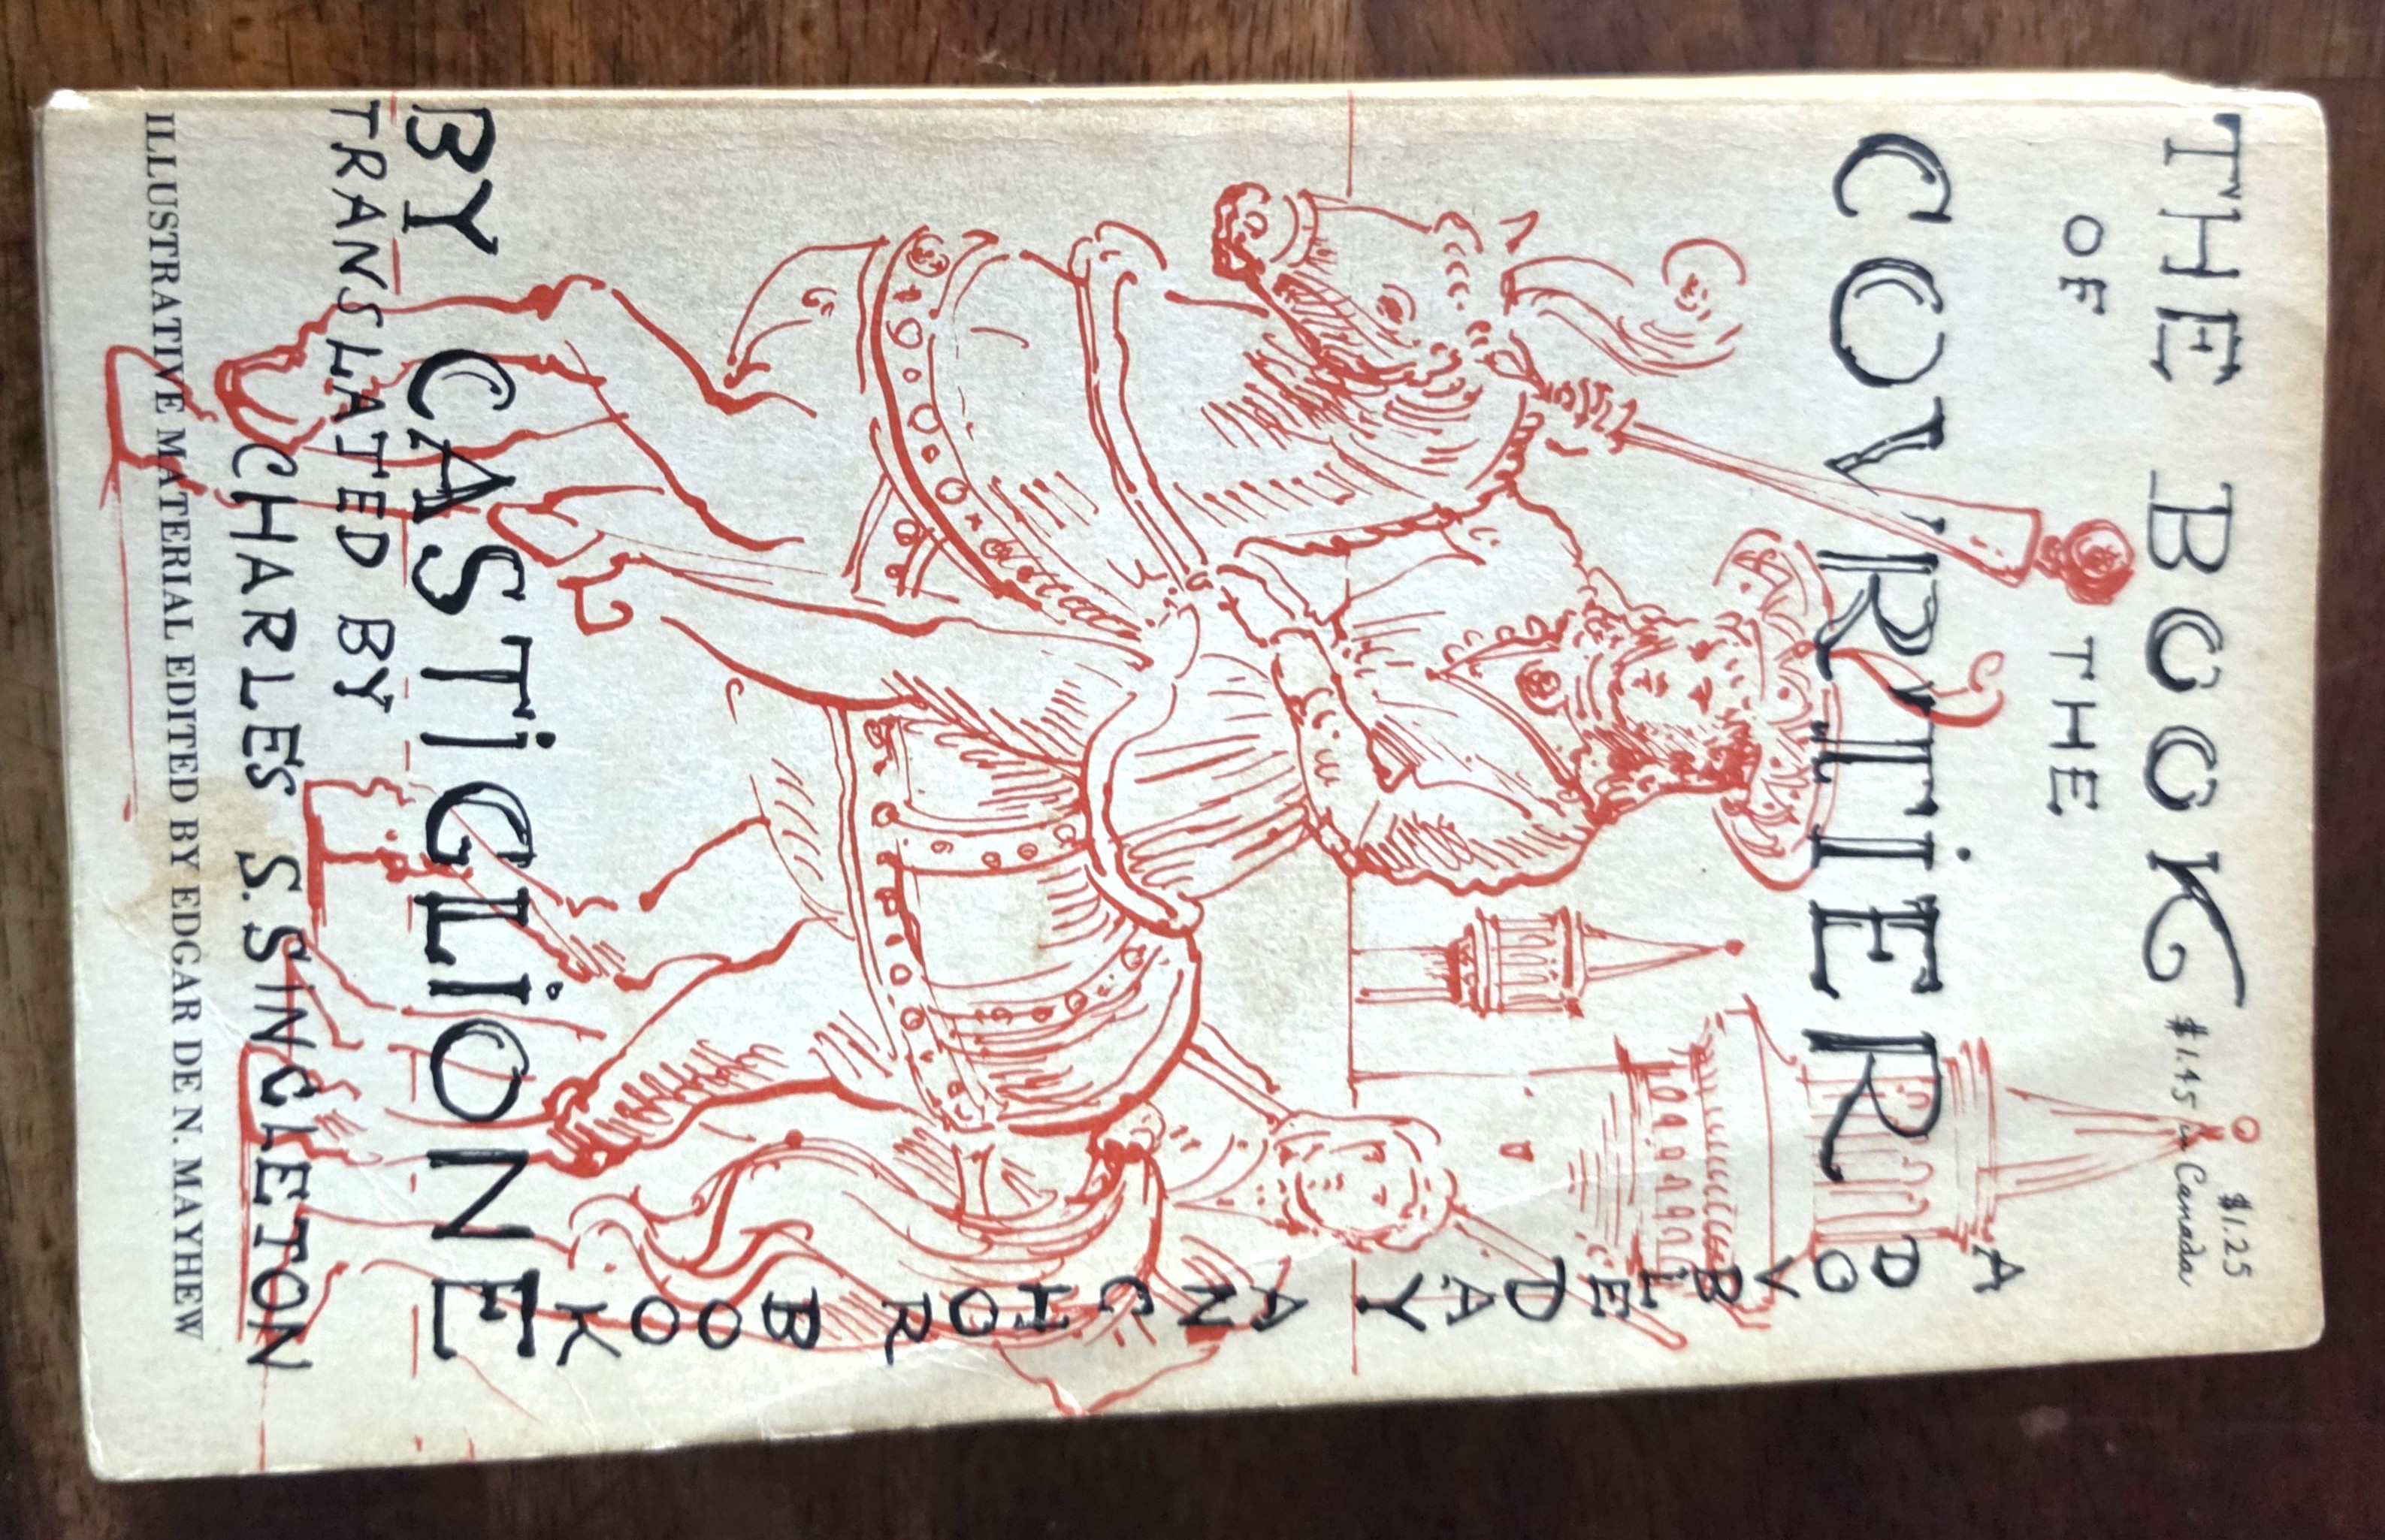 THE BOOK
OF THE
COVRTiER
$1.25
$1.45 in Canada
A DOVBLEDAY ANCHOR BOOK
BY CASTiGLiONE
TRANSLATED BY
CHARLES S. SINGLETON
ILLUSTRATIVE MATERIAL EDITED BY EDGAR DE N. MAYHEW